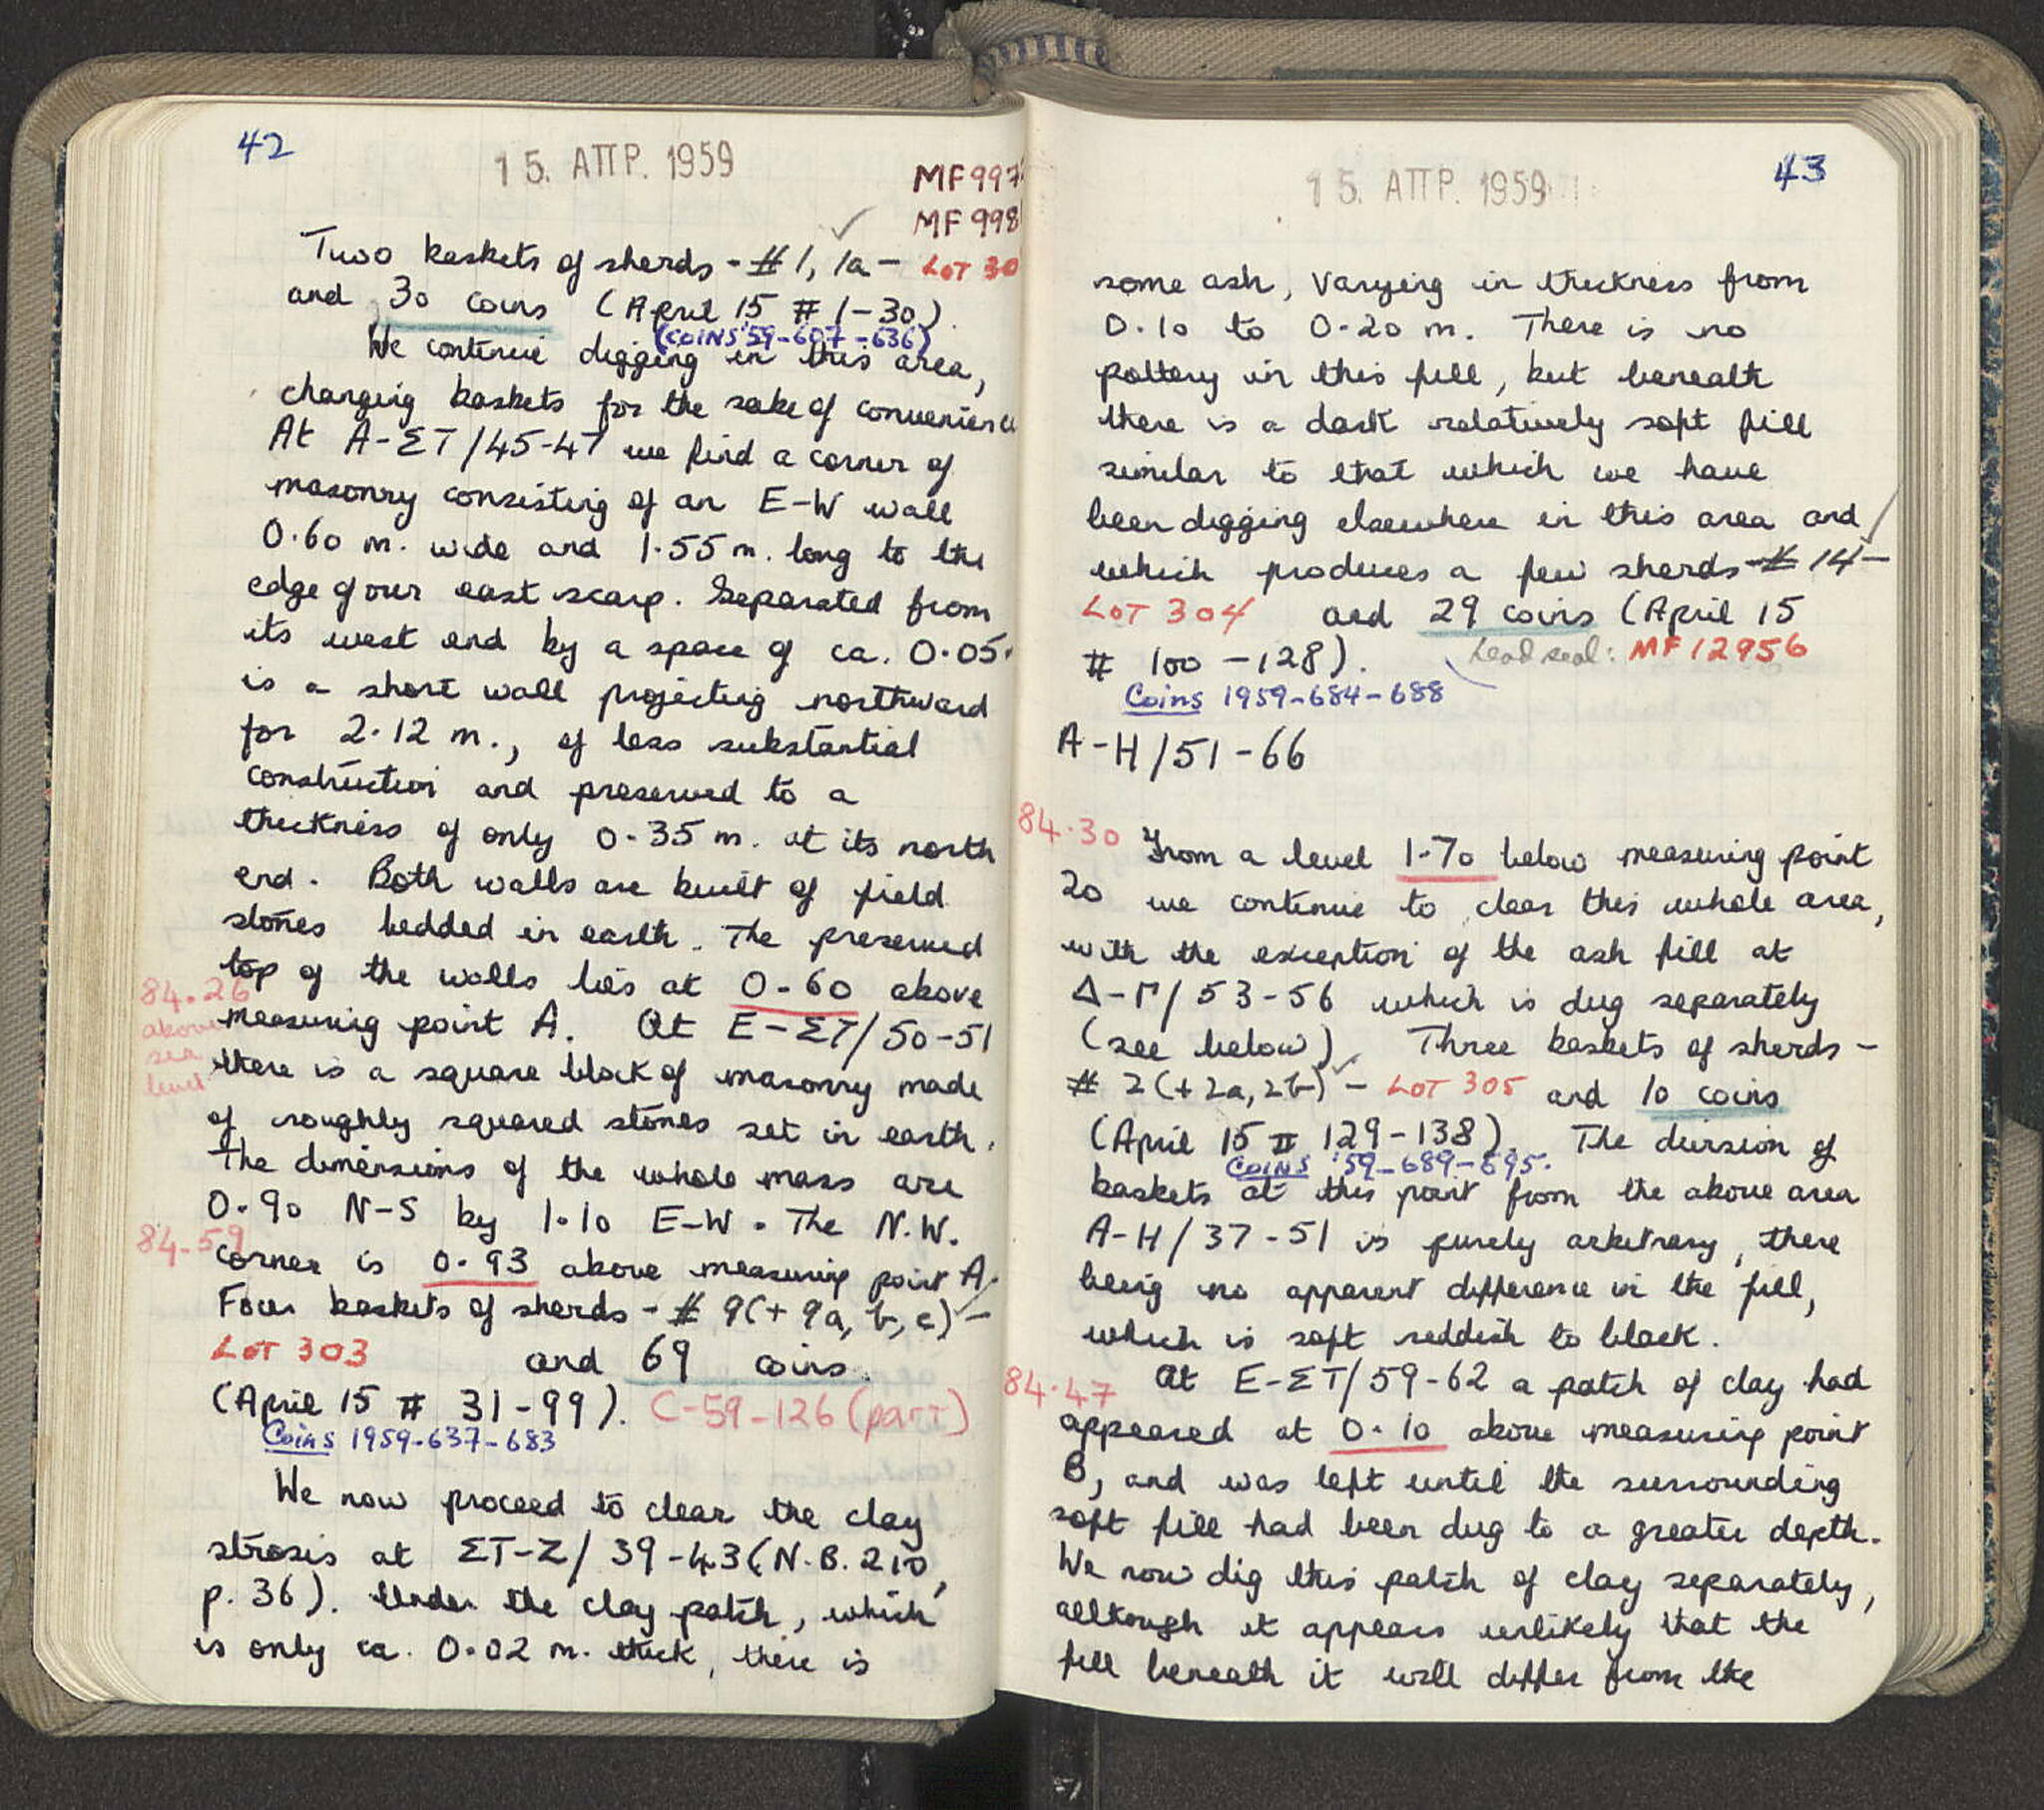 42
15. ΑΠΡ. 1959
MF 997
MF 998
Two baskets of sherds - # 1, 1a - LOT 30
and 30 coins (April 15 # 1-30).
(COINS '59-607-636)
We continue digging in this area,
changing baskets for the sake of convenience
At A-ΣT/45-47 we find a corner of
masonry consisting of an E-W wall
0.60 m. wide and 1.55 m. long to the
edge of our east scarp. Separated from
its west end by a space of ca. 0.05
is a short wall projecting northward
for 2.12 m., of less substantial
construction and preserved to a
thickness of only 0.35 m. at its north
end. Both walls are built of field
stones bedded in earth. The preserved
top of the walls lies at 0.60 above
84.26
above
sea
level
measuring point A. At E-ΣT/50-51
there is a square block of masonry made
of roughly squared stones set in earth.
The dimensions of the whole mass are
0.90 N-S by 1.10 E-W. The N.W.
84.59
corner is 0.93 above measuring point A.
Four baskets of sherds - # 9(+ 9a, b, c) -
LOT 303 and 69 coins.
(April 15 # 31-99). C-59-126 (part)
Coins 1959-637-683
We now proceed to clear the clay
strosis at ΣT-Z/39-43 (N.B. 210,
p. 36). Under the clay patch, which
is only ca. 0.02 m. thick, there is
43
15. ΑΠΡ. 1959
some ash, varying in thickness from
0.10 to 0.20 m. There is no
pottery in this fill, but beneath
there is a dark relatively soft fill
similar to that which we have
been digging elsewhere in this area and
which produces a few sherds - # 14 -
LOT 304 and 29 coins (April 15
# 100-128). Lead seal: MF 12956
Coins 1959-684-688
A-H/51-66
84.30
From a level 1.70 below measuring point
20 we continue to clear this whole area,
with the exception of the ash fill at
Δ-Γ/53-56 which is dug separately
(see below). Three baskets of sherds -
# 2(+2a, 2b) - LOT 305 and 10 coins
(April 15 # 129-138). The division of
COINS '59-689-695.
baskets at this point from the above area
A-H/37-51 is purely arbitrary, there
being no apparent difference in the fill,
which is soft reddish to black.
84.47
At E-ΣT/59-62 a patch of clay had
appeared at 0.10 above measuring point
B, and was left until the surrounding
soft fill had been dug to a greater depth.
We now dig this patch of clay separately,
although it appears unlikely that the
fill beneath it will differ from the